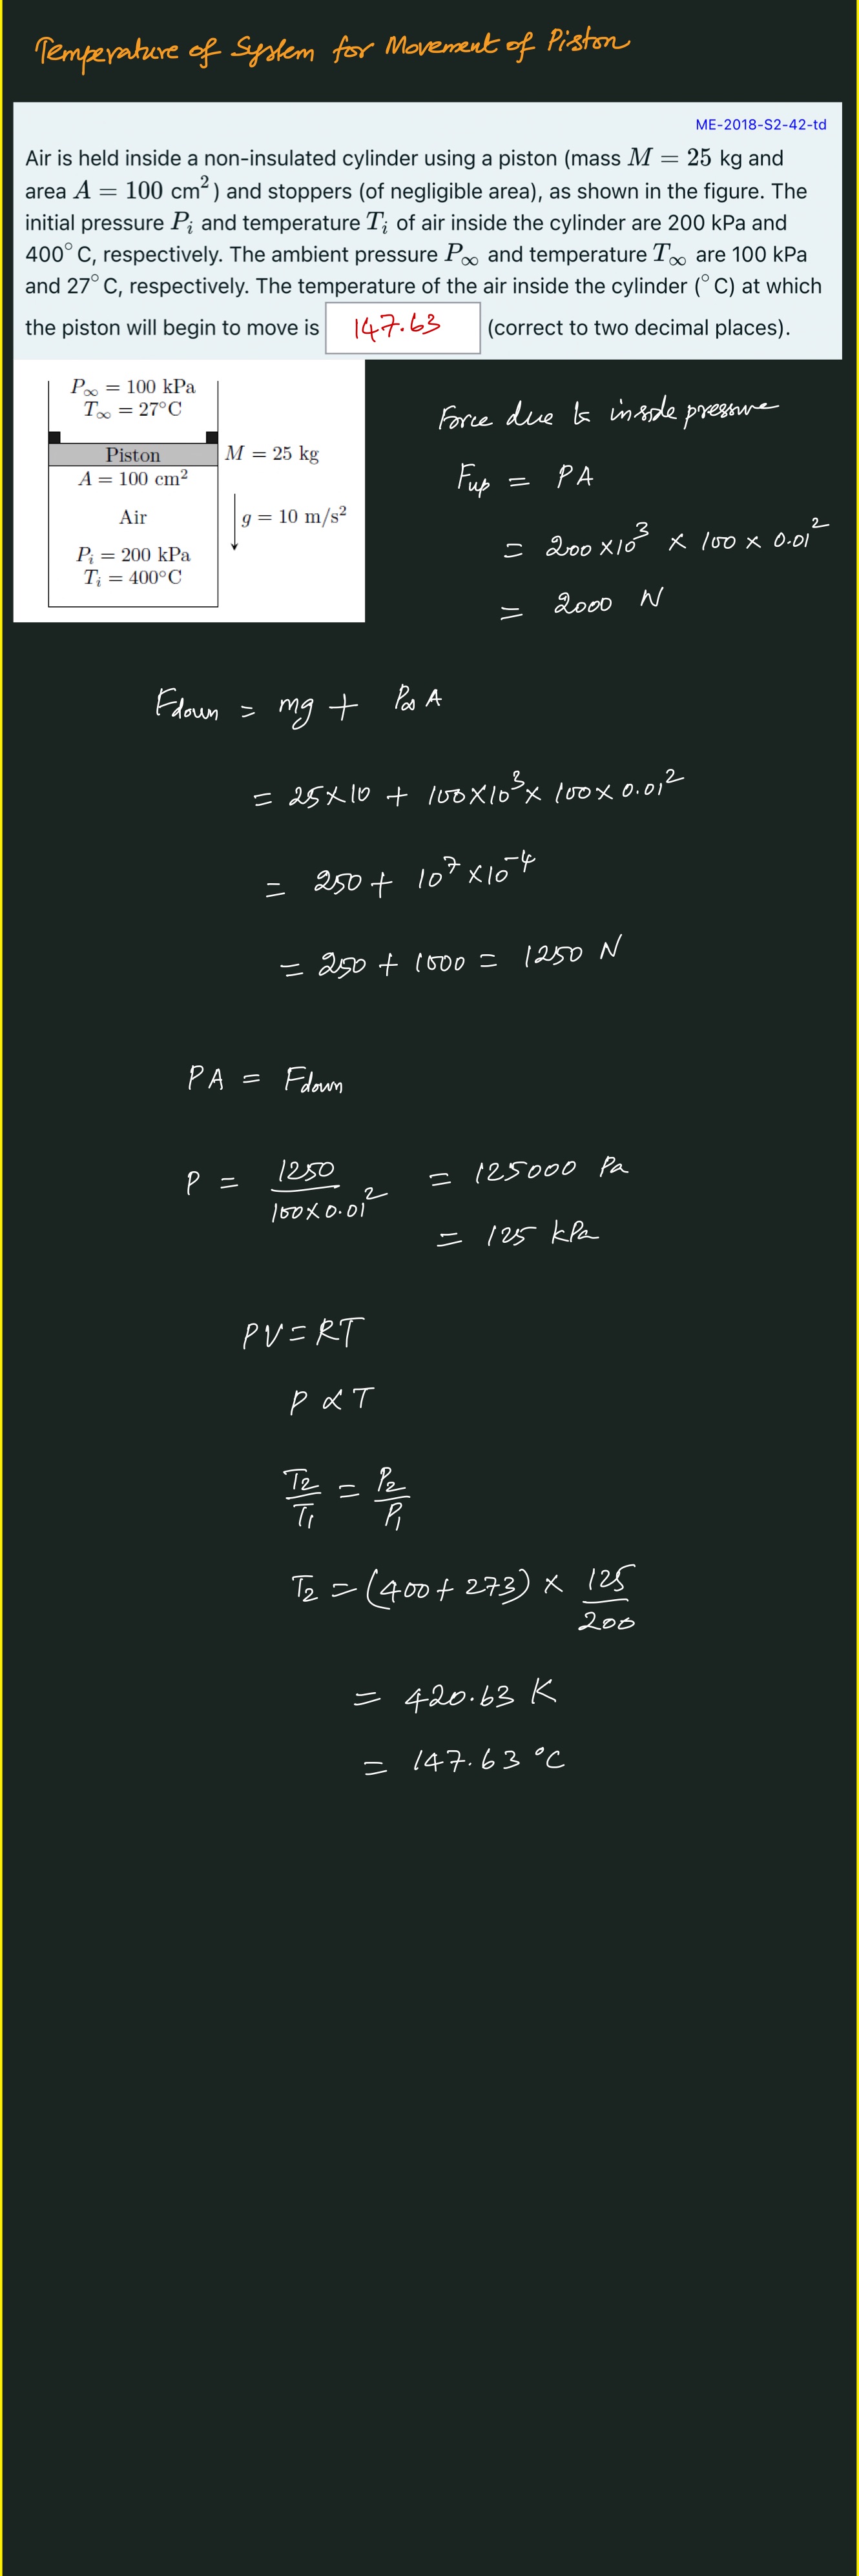 Temperature of System for Movement of Piston
ME-2018-S2-42-td
Air is held inside a non-insulated cylinder using a piston (mass M = 25 kg and
area A = 100 cm²) and stoppers (of negligible area), as shown in the figure. The
initial pressure Pᵢ and temperature Tᵢ of air inside the cylinder are 200 kPa and
400° C, respectively. The ambient pressure P∞ and temperature T∞ are 100 kPa
and 27° C, respectively. The temperature of the air inside the cylinder (° C) at which
the piston will begin to move is 147.63 (correct to two decimal places).
P∞ = 100 kPa
T∞ = 27°C
Piston M = 25 kg
A = 100 cm²
Air g = 10 m/s²
Pᵢ = 200 kPa
Tᵢ = 400°C
Force due to inside pressure
Fup = PA
= 200 × 10³ × 100 × 0.01²
= 2000 N
Fdown = mg + P∞ A
= 25 × 10 + 100 × 10³ × 100 × 0.01²
= 250 + 10⁷ × 10⁻⁴
= 250 + 1000 = 1250 N
PA = Fdown
P = 1250 / 100 × 0.01² = 125000 Pa
= 125 kPa
PV = RT
P ∝ T
T₂/T₁ = P₂/P₁
T₂ = (400 + 273) × 125/200
= 420.63 K
= 147.63 °C